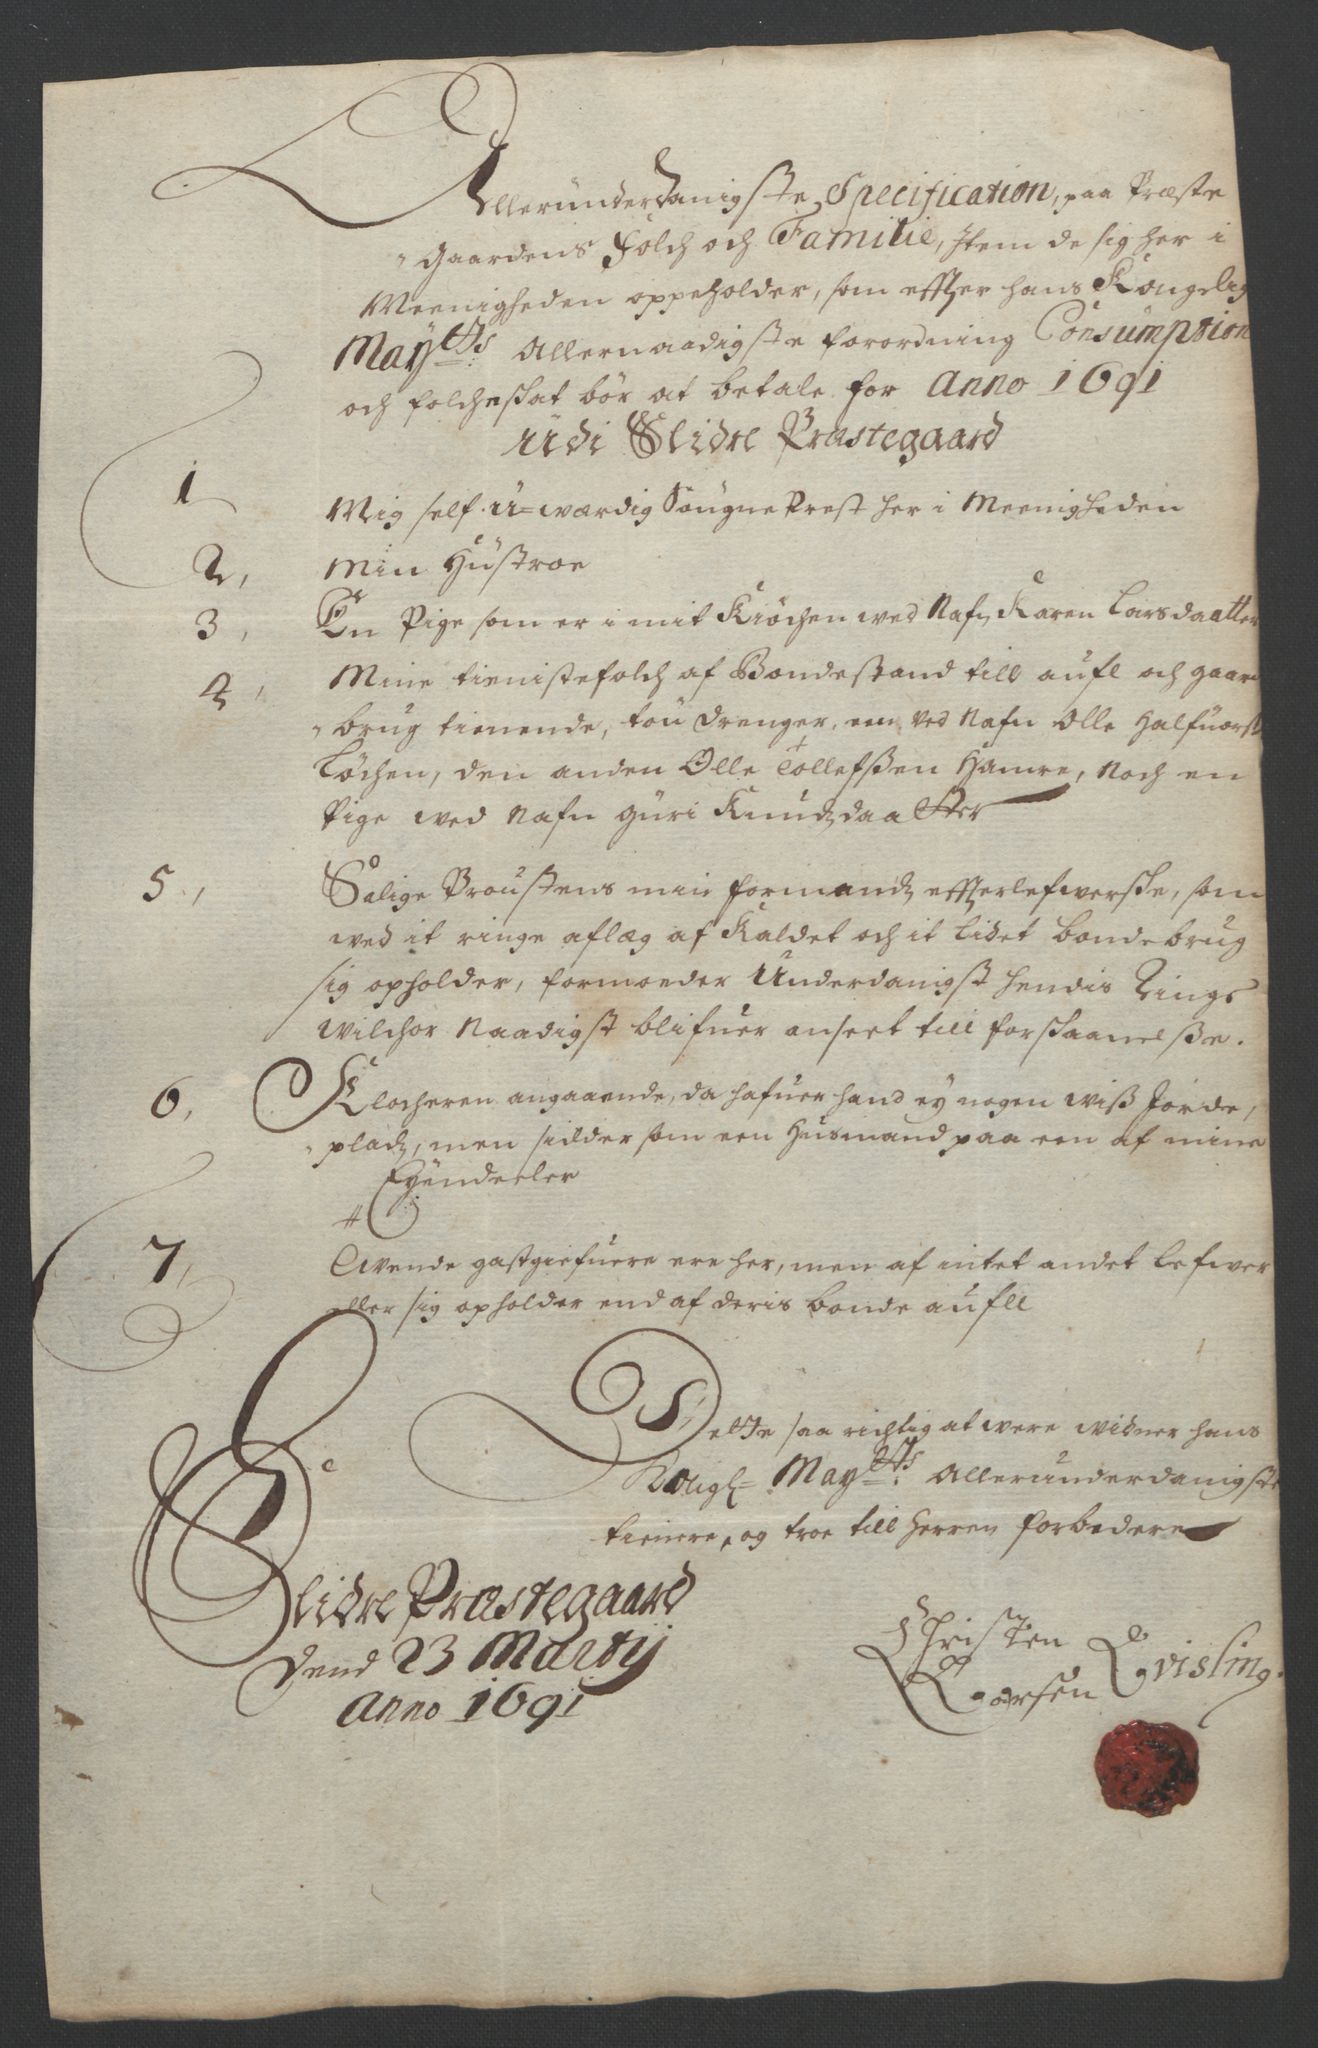 Alleründerdanigste Specification, paa Præste
Gaardens Folch och Familie, Item de sig her i
Meenigheden oppeholder, som effter hans Kongelig
May:tts Allernaadigste forordning Consumption
och folcheschat bör at betale for Anno 1691
Udi Slidre Præstegaard
1 Mig self u=værdig SougnePrest her i Meenigheden
2, Min Hüstroe
3, En Pige som er i mit Kiöchen wed Nafn Karen Larsdaatter
4, Mine tienistefolch af Bondestand till aufl och gaard
brug tienende, tou drenger, een ved Nafn Olle Halfuors:
Löchen, den anden Olle Tollefssen Hamre, Noch en
Pige wed Nafn Güri Knudzdaatter
5, Salige Proustens min formandz effterlefwersche, som
wed it ringe aflæg af Kaldet och it lidet bondebrug
sig opholder, formoeder Underdanigst hendis Rings
wilchor Naadigst blifuer anseet till forschaanelsse.
6, Klocheren angaaende, da hafuer hand ey nogen wiss Jorde,
pladz, men sidder som een Husmand paa een af mine
Eyendeeler
7, Tvende gastgiefuere ere her, men af intet andet lefwer
eller sig opholder end af deris bonde aufll
Dette saa richtig at were widner hans
Kongl= May:tts Allerunderdanigste
tienere, og troe till Herren forbedere
Slidre Præstegaard
Dend 23 Martij
Anno 1691
Christen Qvisling
Laarsen